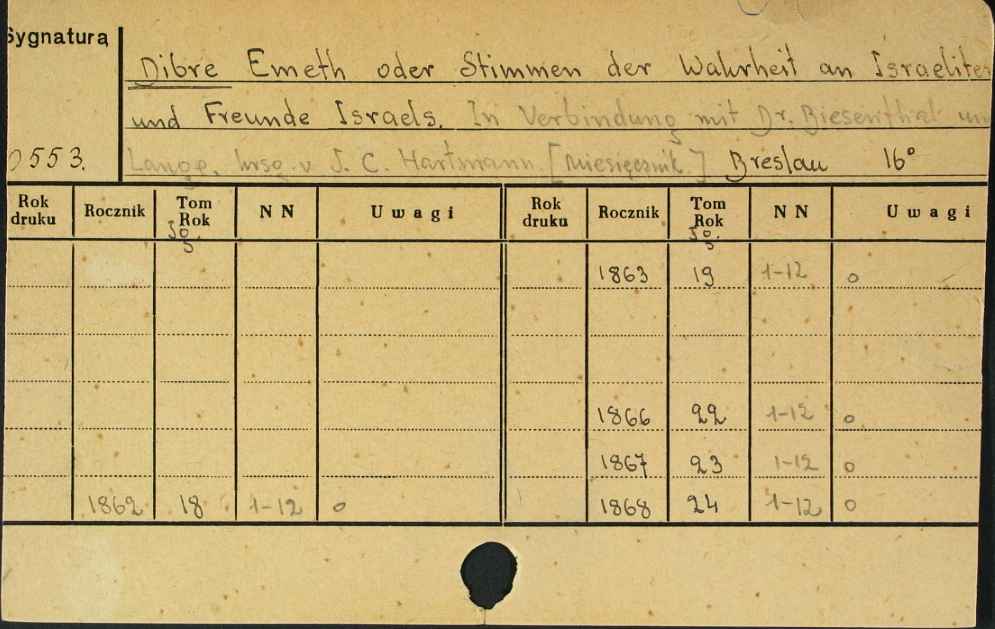 Sygnatura
Dibre Emeth oder Stimmen der Wahrheit an Israeliten
und Freunde Israels. In Verbindung mit Dr. Biesenthal un
0553. Lange, hrsg. v. J. C. Hartmann [miesięcznik] Breslau 16°
Rok druku Rocznik Tom Rok NN Uwagi Rok druku Rocznik Tom Rok NN Uwagi
Jg. Jg.
1863 19 1-12 o
1866 22 1-12 o
1867 23 1-12 o
1862 18 1-12 o 1868 24 1-12 o